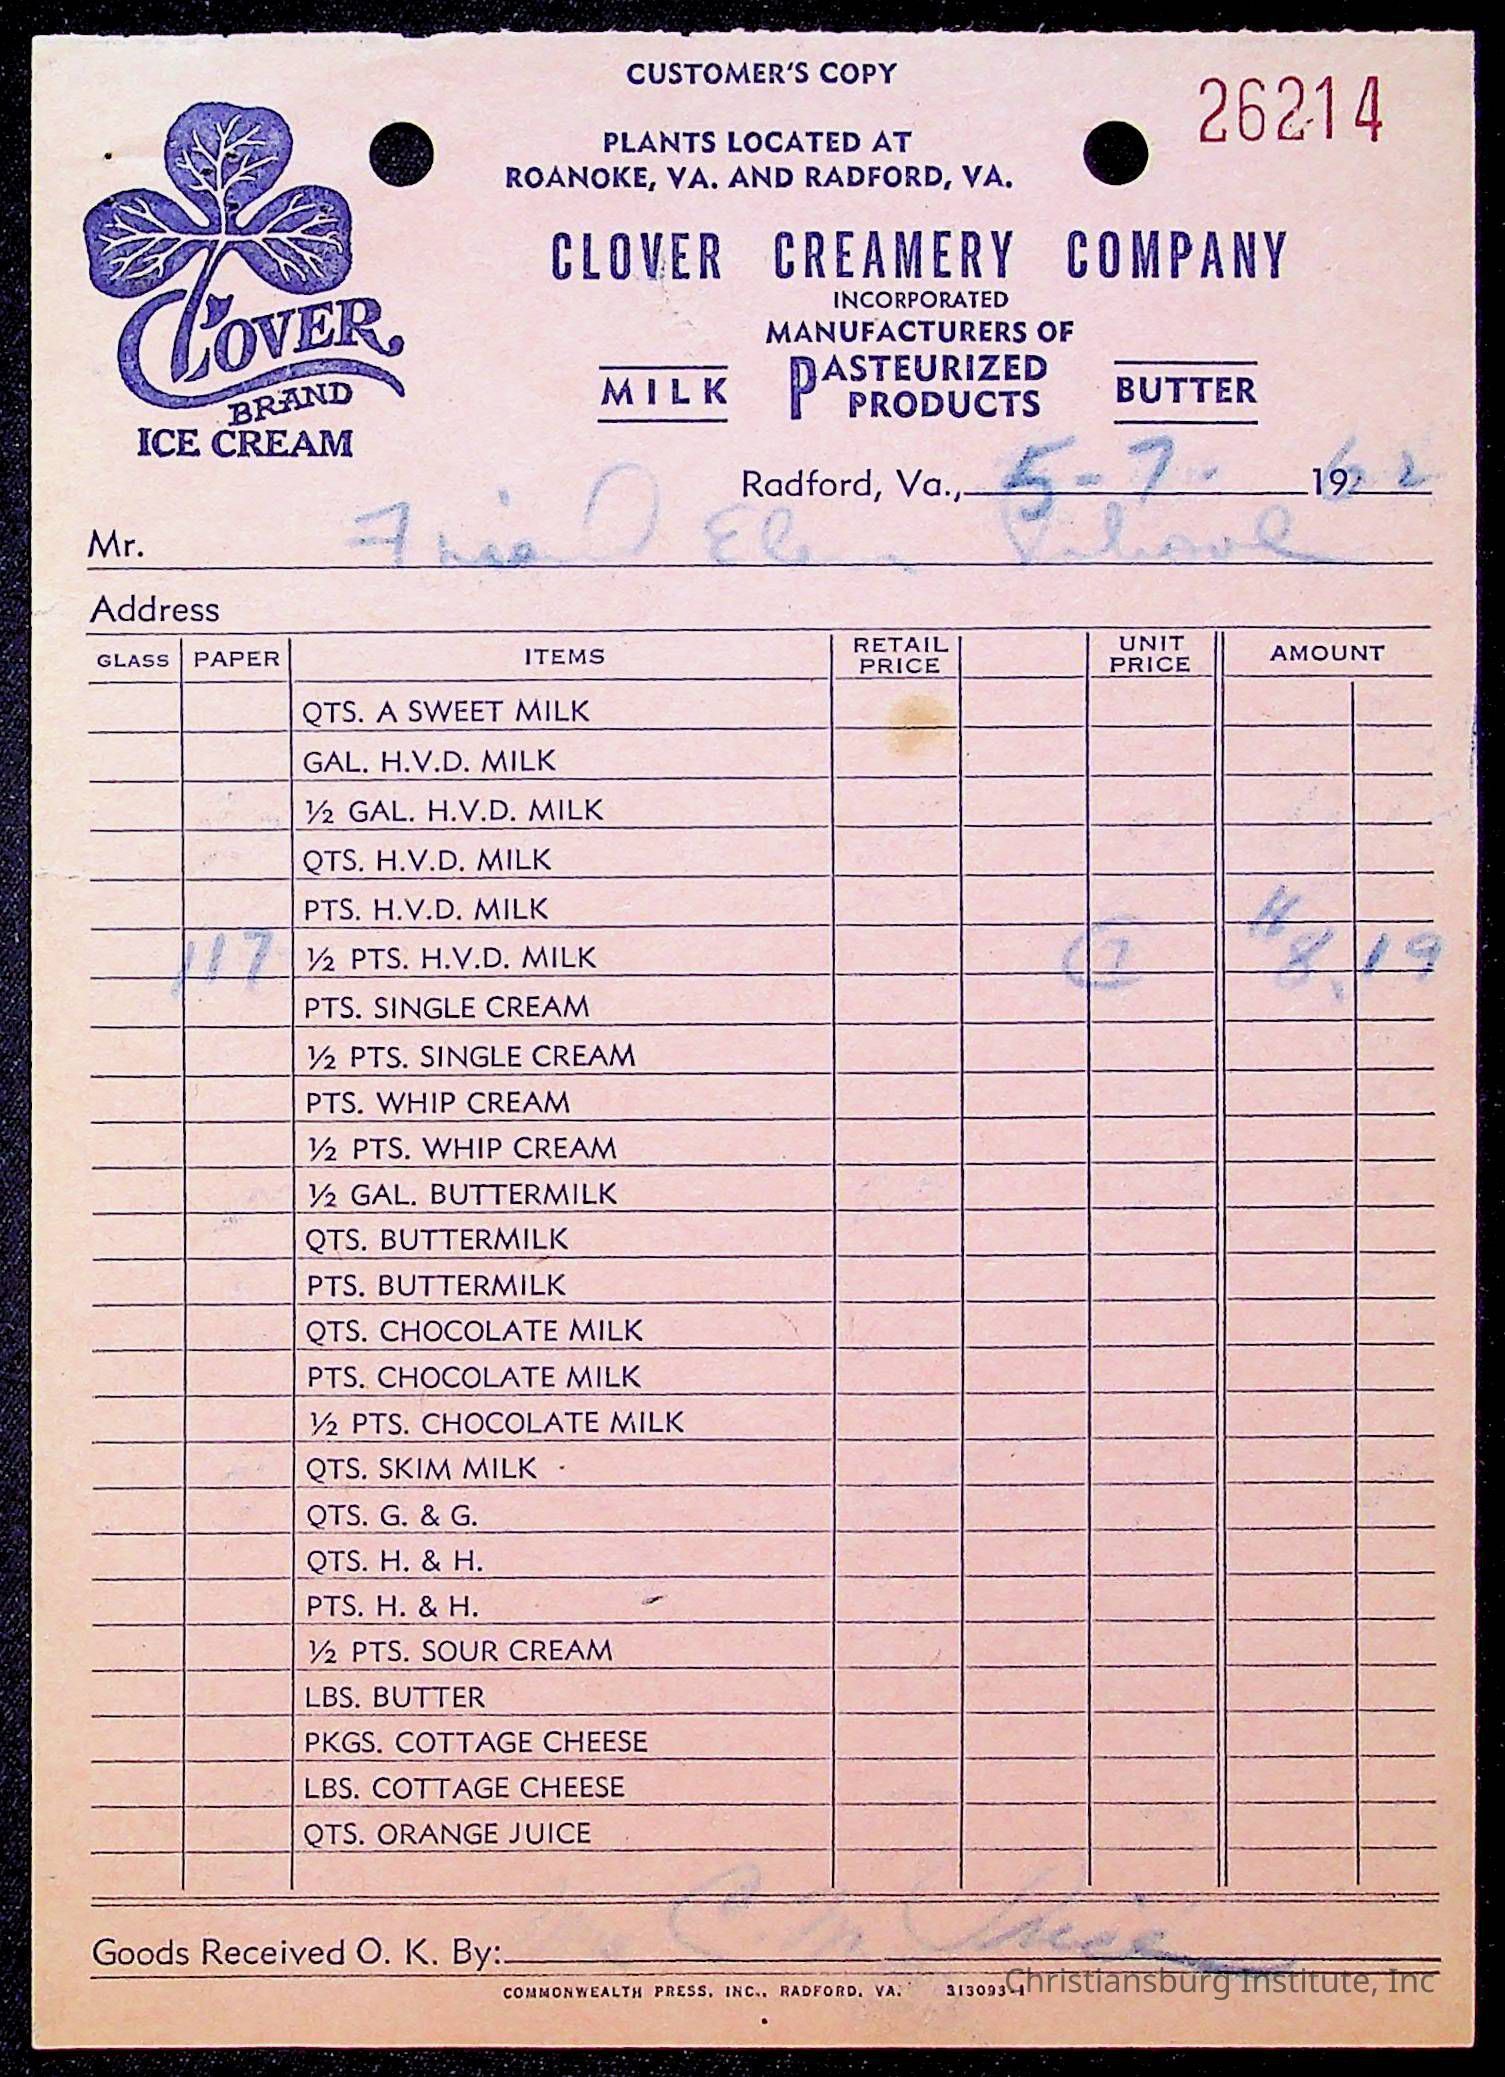 CUSTOMER'S COPY
26214
PLANTS LOCATED AT
ROANOKE, VA. AND RADFORD, VA.
CLOVER CREAMERY COMPANY
INCORPORATED
MANUFACTURERS OF
MILK PASTEURIZED PRODUCTS BUTTER
CLOVER
BRAND
ICE CREAM
Radford, Va., 5-7- 1962
Mr. Friend Elem School
Address
GLASS PAPER ITEMS RETAIL PRICE UNIT PRICE AMOUNT
QTS. A SWEET MILK
GAL. H.V.D. MILK
½ GAL. H.V.D. MILK
QTS. H.V.D. MILK
PTS. H.V.D. MILK
117 ½ PTS. H.V.D. MILK 7 8.19
PTS. SINGLE CREAM
½ PTS. SINGLE CREAM
PTS. WHIP CREAM
½ PTS. WHIP CREAM
½ GAL. BUTTERMILK
QTS. BUTTERMILK
PTS. BUTTERMILK
QTS. CHOCOLATE MILK
PTS. CHOCOLATE MILK
½ PTS. CHOCOLATE MILK
QTS. SKIM MILK
QTS. G. & G.
QTS. H. & H.
PTS. H. & H.
½ PTS. SOUR CREAM
LBS. BUTTER
PKGS. COTTAGE CHEESE
LBS. COTTAGE CHEESE
QTS. ORANGE JUICE
Goods Received O. K. By: C. M.
COMMONWEALTH PRESS, INC., RADFORD, VA. 313093-1
Christiansburg Institute, Inc